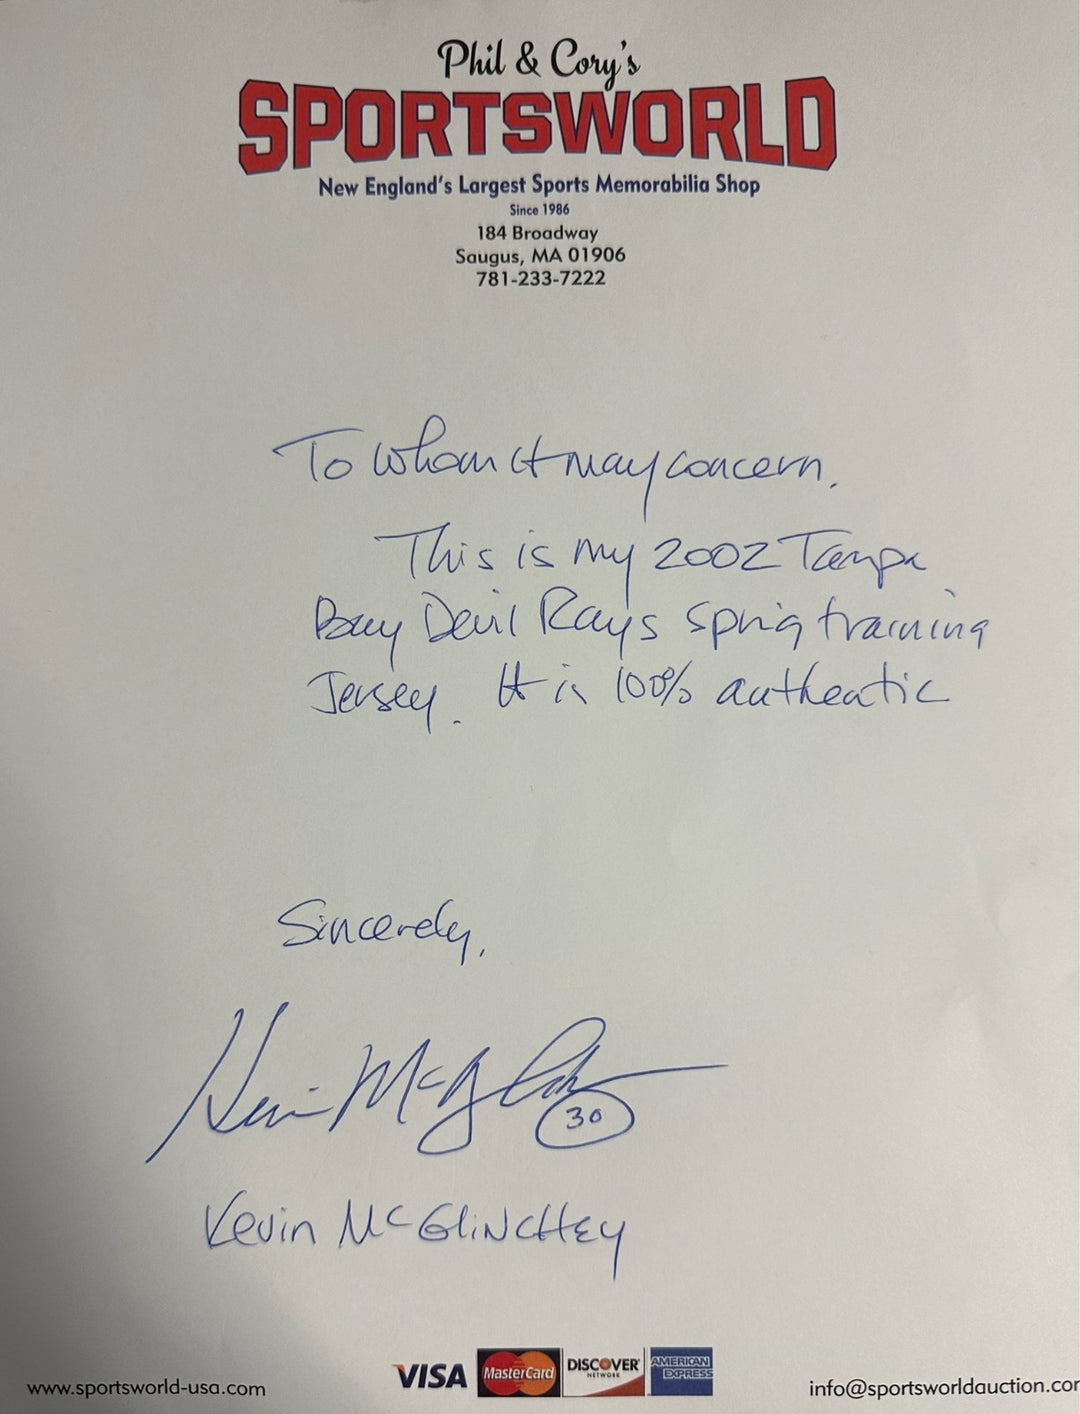 Phil & Cory's
SPORTSWORLD
New England's Largest Sports Memorabilia Shop
Since 1986
184 Broadway
Saugus, MA 01906
781-233-7222
To Whom it may concern.
This is my 2002 Tampa
Bay Devil Rays spring training
Jersey. It is 100% authentic
Sincerely,
Kevin McGlinchey
30
Kevin McGLINCHEY
VISA MasterCard DISCOVER NETWORK AMERICAN EXPRESS
www.sportsworld-usa.com
info@sportsworldauction.com